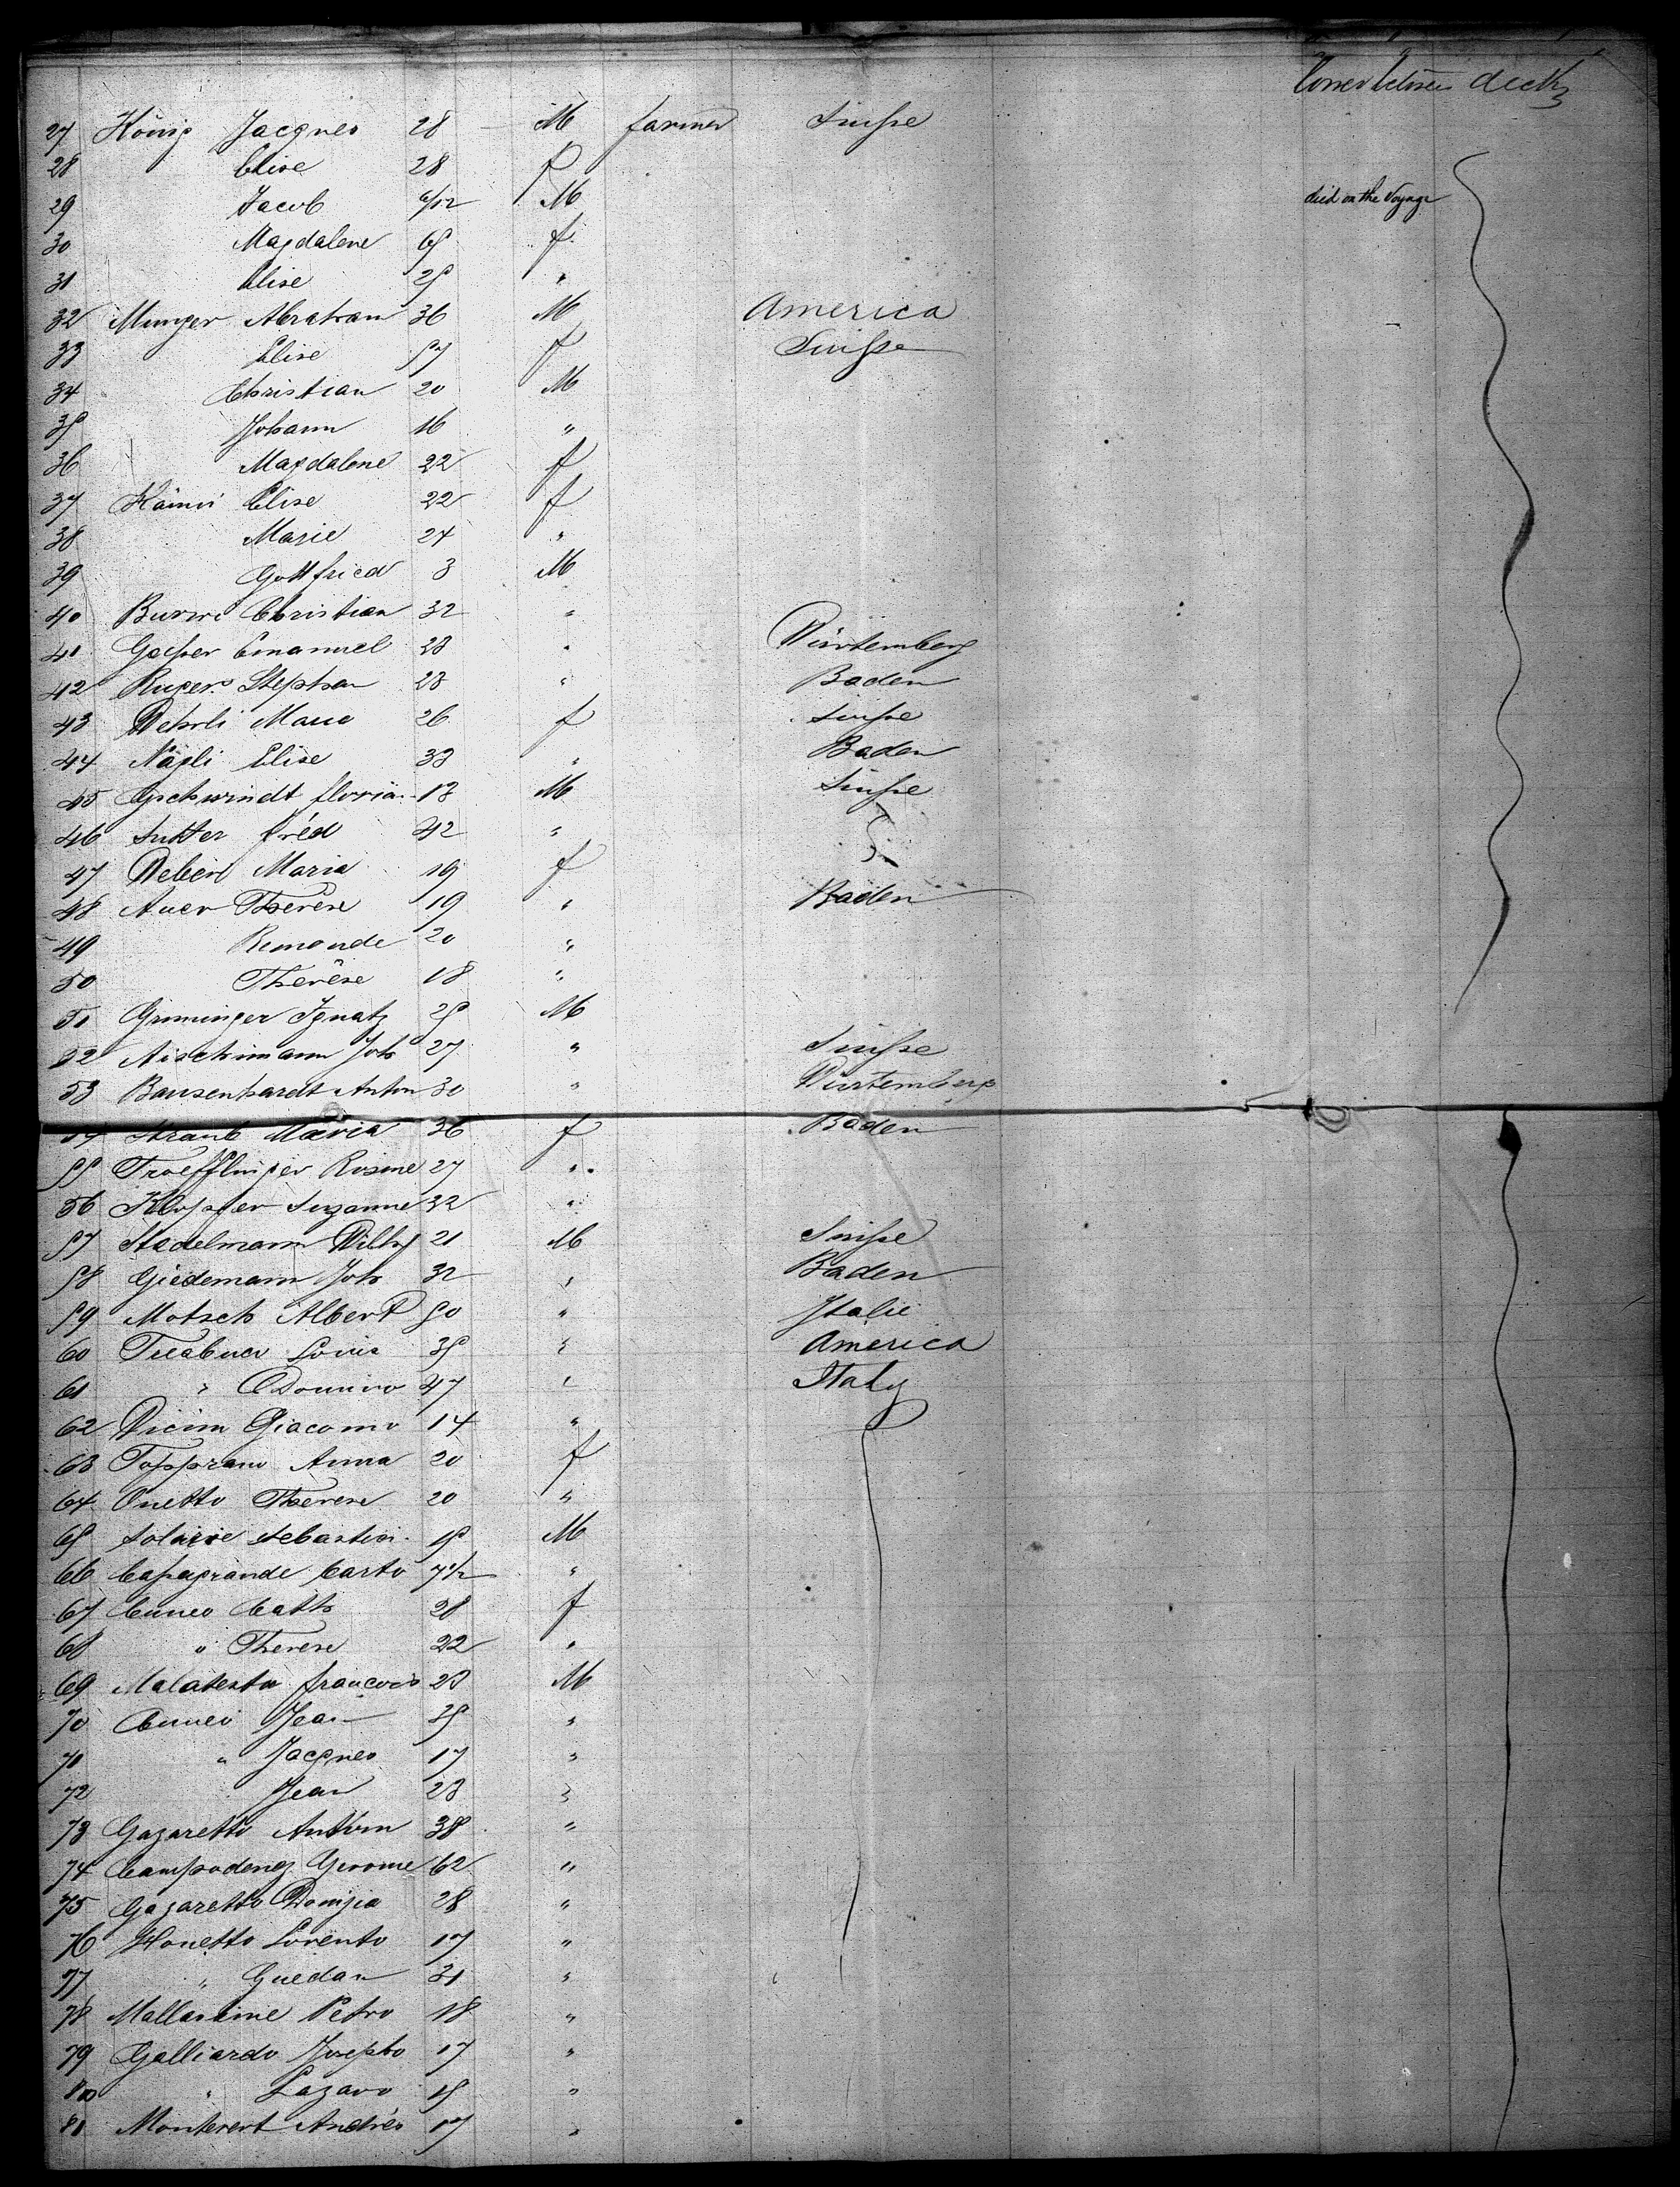 Lower between decks
27 König Jacques 28 M farmer Suisse
28 Elise 28 f
29 Jacob 6/12 M died on the Voyage
30 Magdalene 65 f
31 Elise 25 "
32 Munger Abraham 36 M America
33 Elise 57 f Suisse
34 Christian 20 M
35 Johann 16 "
36 Magdalene 22 f
37 Elise 22 f
38 Marie 24 "
39 Gottfried 3 M
40 Christian 32 "
41 Gasser Emanuel 28 " Würtemberg
42 Stephan 28 " Baden
43 Wehrli 26 f Suisse
44 Nägli Elise 33 " Baden
45 Gschwindt floria 18 M Suisse
46 Sutter fréd 42 "
47 Maria 19 f
48 Auer Therese 19 " Baden
49 20 "
50 Thérèse 18 "
51 Grminger Ignatz 25 M
52 Aischmann Joh 27 " Suisse
53 Bausenhardt Anton 30 " Würtemberg
54 Straub Maria 36 f Baden
55 Troefflinger Rosine 27 "
56 Klopfer Suzanne 32 "
57 Stadelmann Wilh 21 M Suisse
58 Giedemann Joh 32 " Baden
59 Motsch Albert 50 " Italie
60 Louis 35 " America
61 " 47 " Italy
62 Giacomo 14 "
63 Anna 20 f
64 Onetto Therese 20 "
65 Sebastian 15 M
66 Casagrande Carlo 7 1/2 "
67 Cuneo Cath 28 f
68 " Therese 22 "
69 Malatesta francois 28 M
70 Cuneo Jean 25 "
71 " Jacques 17 "
72 Jean 23 "
73 Gazaretto Antoin 38 "
74 Gerome 62 "
75 Gazaretto 28 "
76 Honetto Lorento 17 "
77 " Guedan 21 "
78 Petro 18 "
79 Galliardo Josepho 17 "
80 " Lazaro 15 "
81 Andrés 17 "